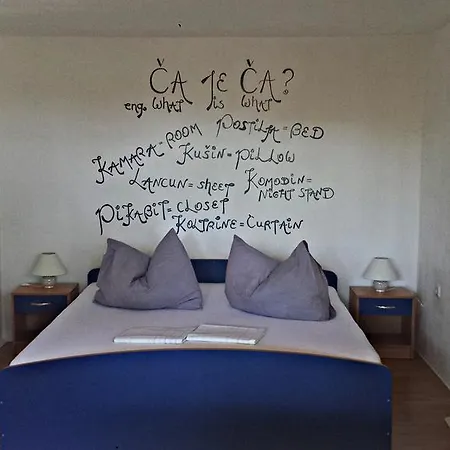 ČA JE ČA?
eng. WHAT IS WHAT
KAMARA=ROOM POSTILJA=BED
KUŠIN=PILLOW
LANCUN=SHEET KOMODIN=NIGHT STAND
PIKABIT=CLOSET
KOLTRINE=CURTAIN